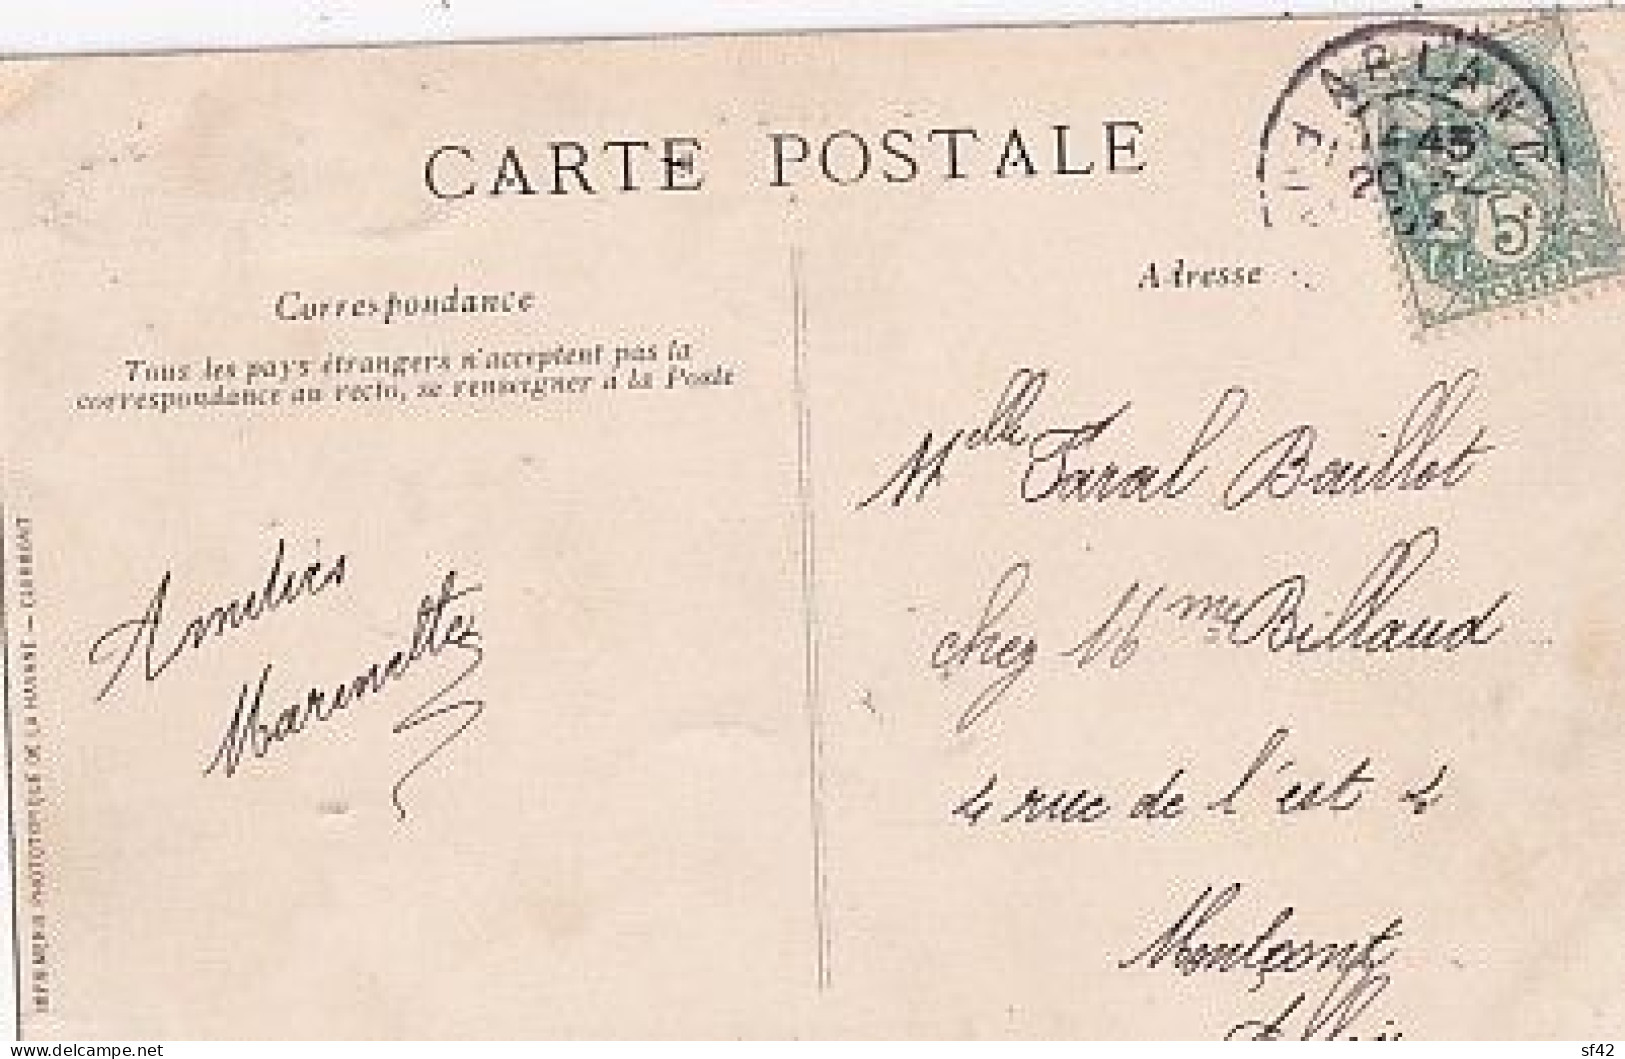 CARTE POSTALE
Correspondance
Tous les pays étrangers n'acceptent pas la
correspondance au recto, se renseigner à la Poste
Adresse
5
Amitiés
Marinette
Melle Faral Baillot
chez Mme Billaud
4 rue de l'est 4
Montçont
Allier
IMPRIMERIE PHOTOTYPIQUE DE LA HAYNNE - CLERMONT
delcampe.net
sf42